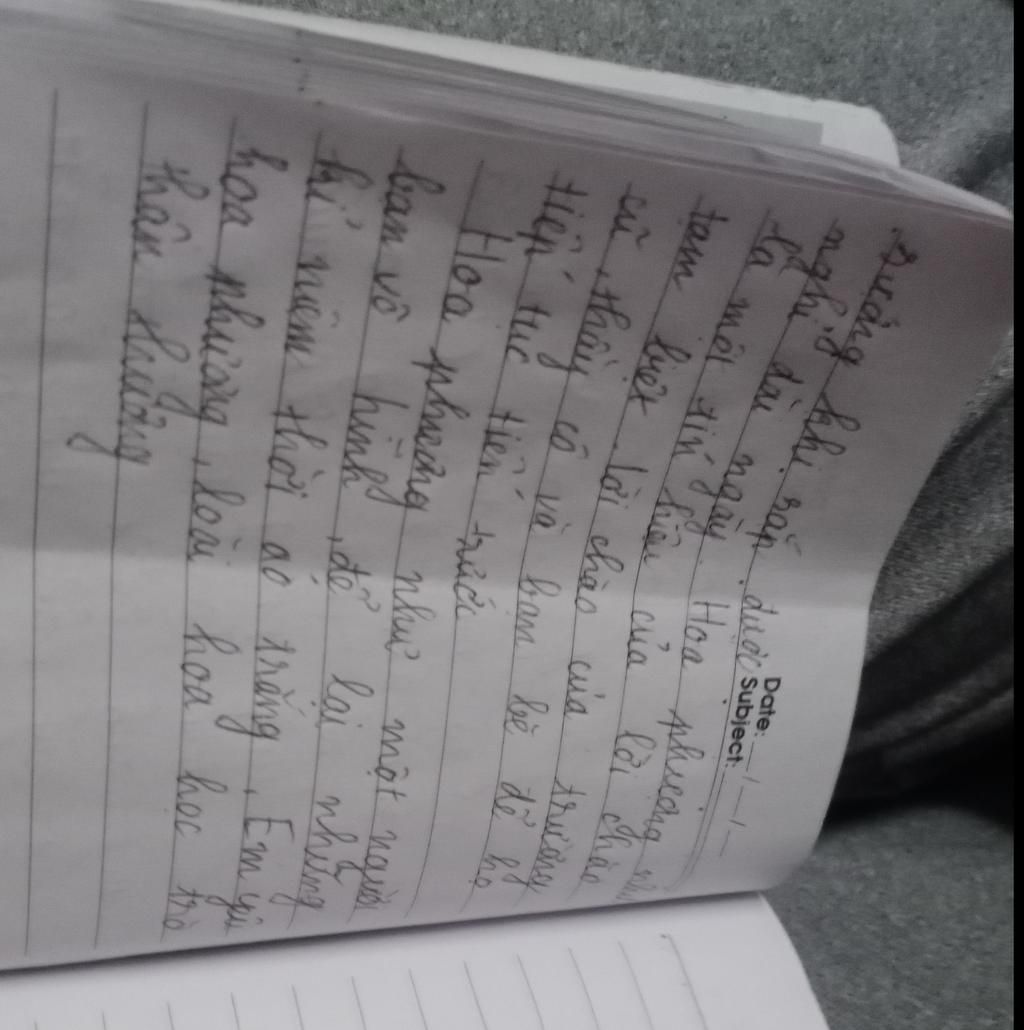 Date: __/__/__
Subject:
trường khi sắp được
nghỉ dài ngày. Hoa phượng như
là một tín hiệu của lời chào
tạm biệt, lời chào của trường
cũ, thầy cô và bạn bè để họ
tiếp tục tiến bước
Hoa phượng như một người
bạn vô hình, để lại những
kỉ niệm thời áo trắng. Em yêu
hoa phượng, loài hoa học trò
thân thương